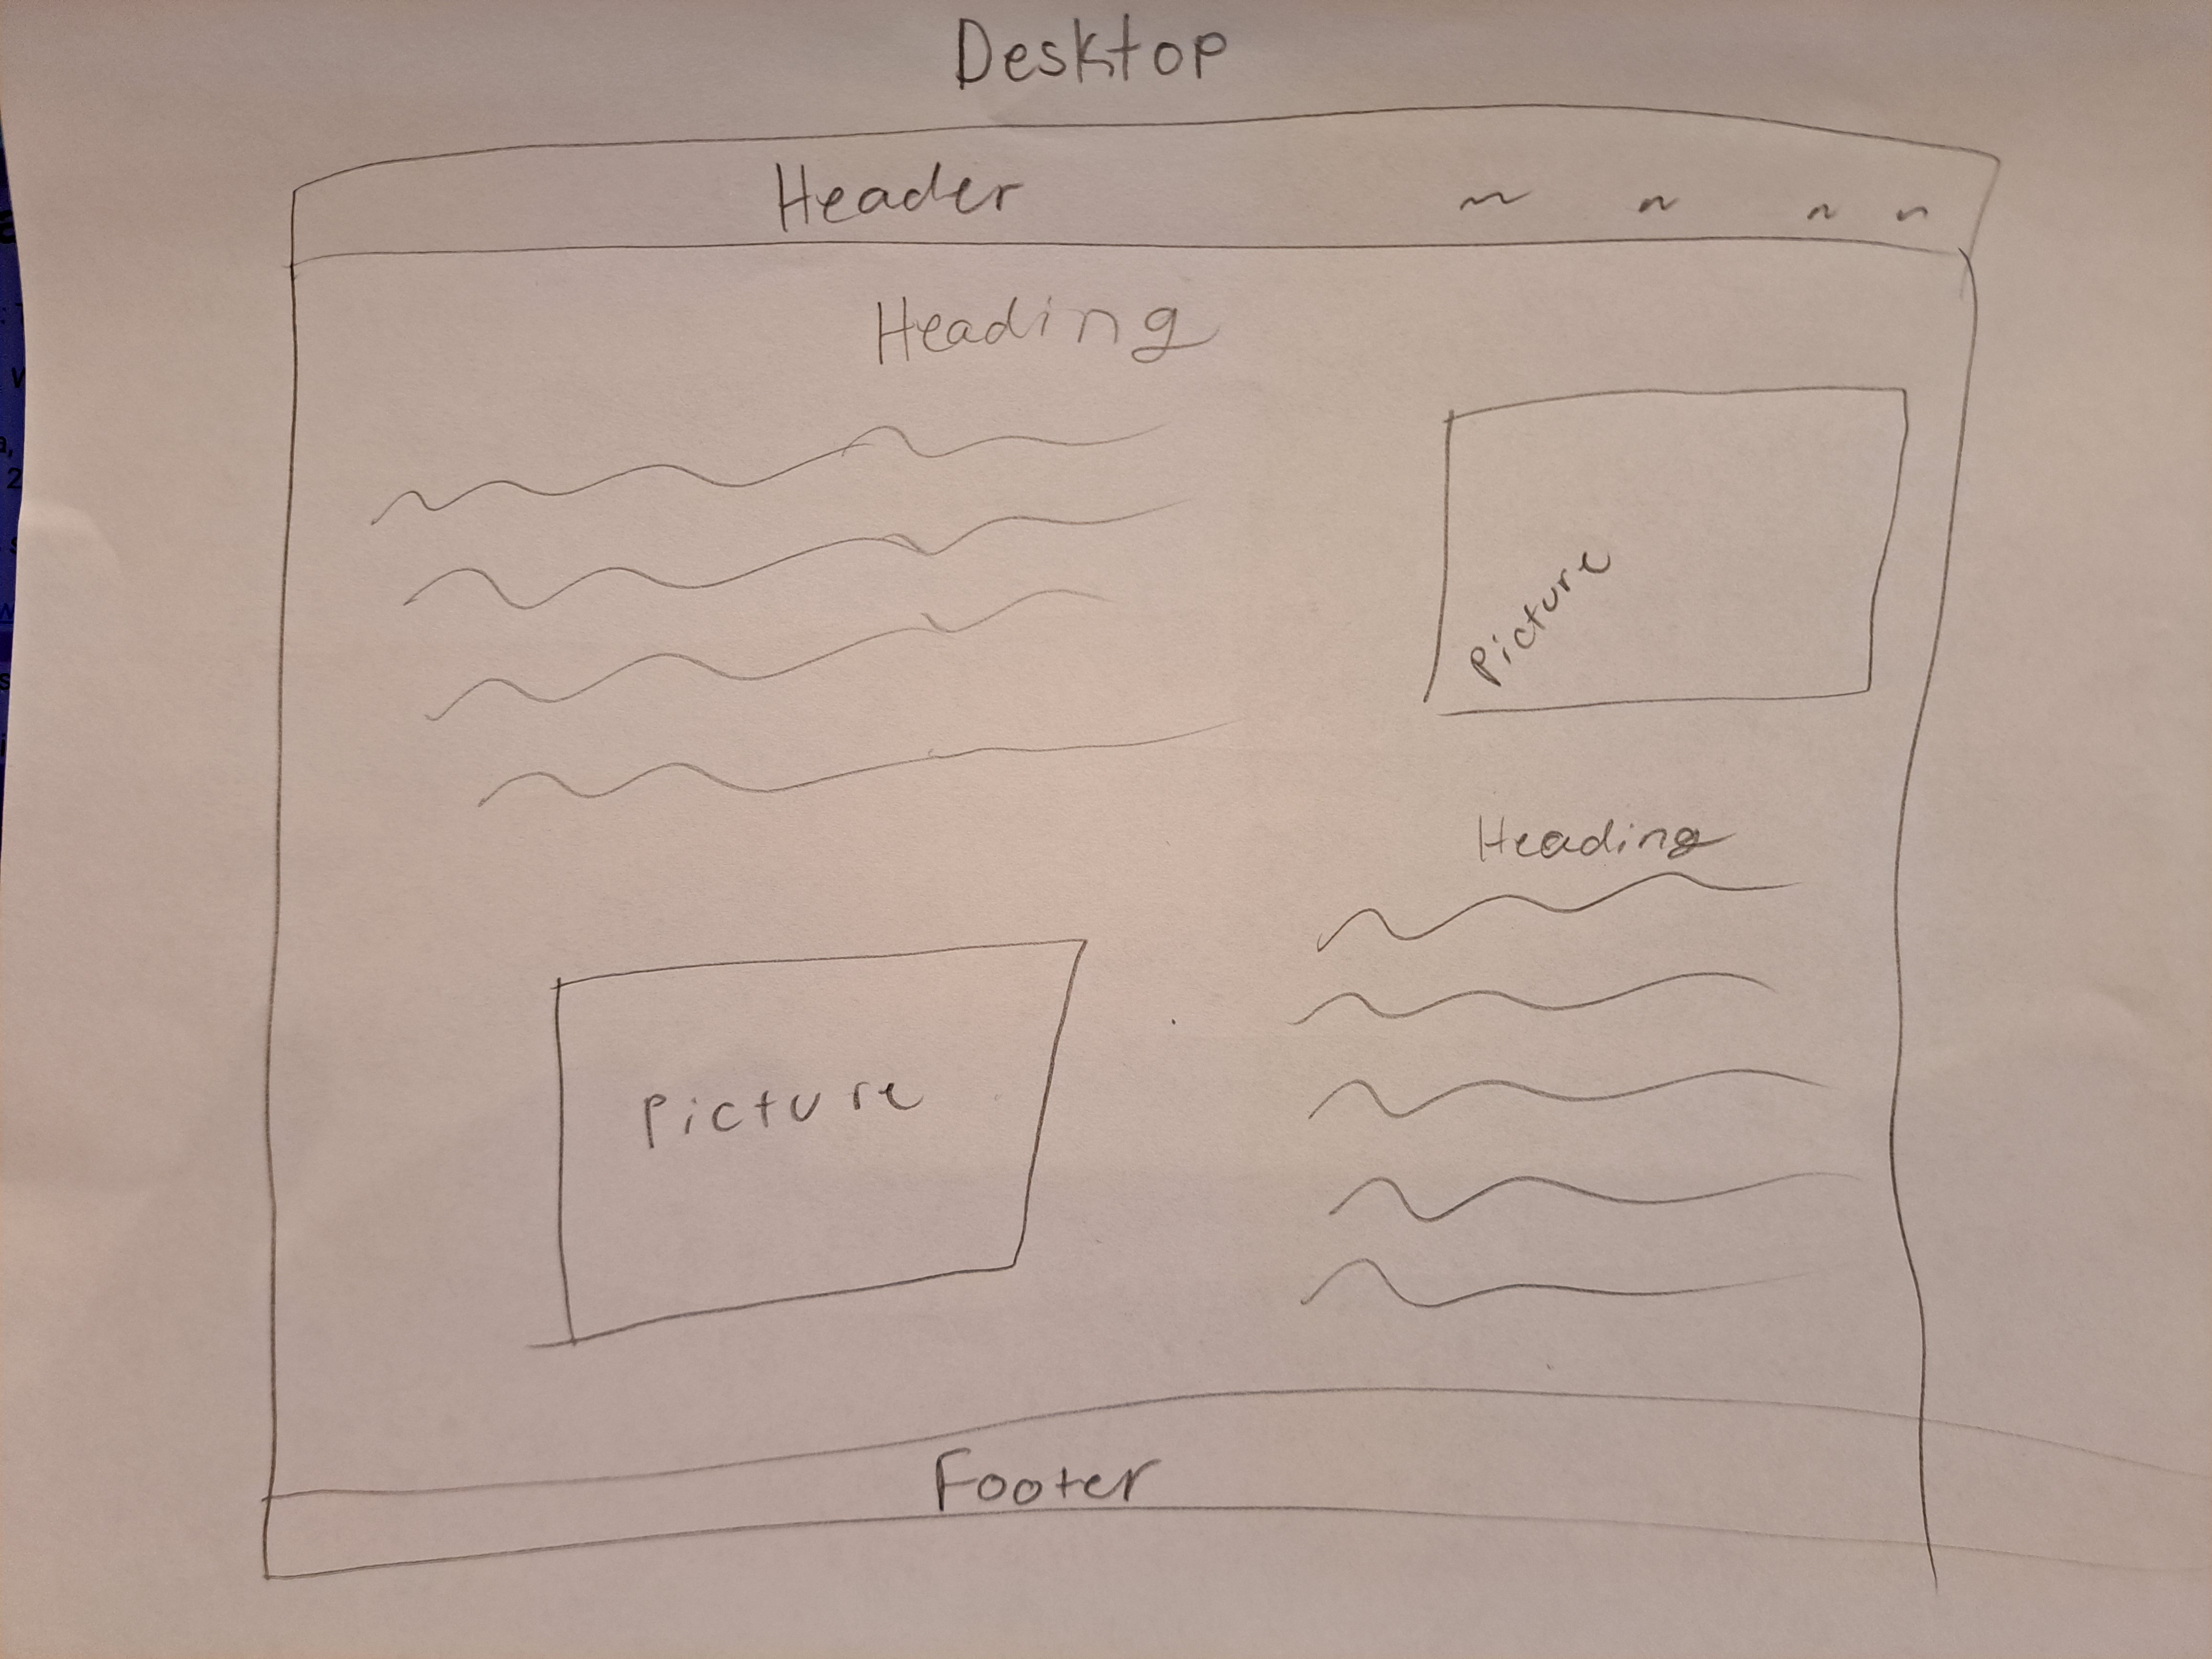 Desktop
Header
Heading
Picture
Heading
Picture
Footer